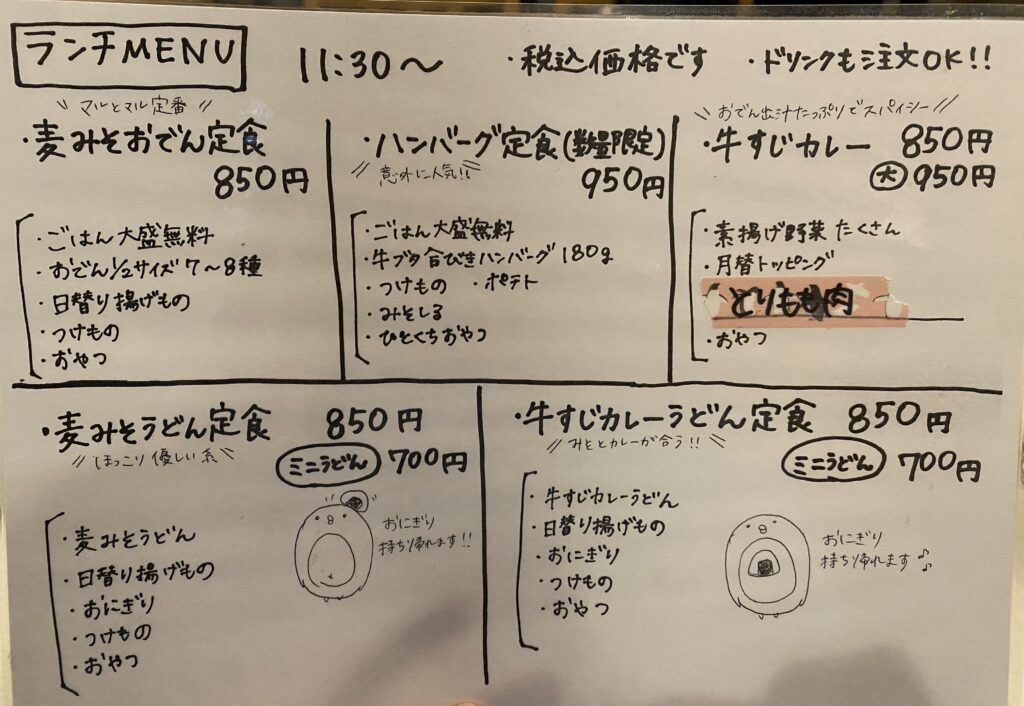 ランチMENU
11:30〜
・税込価格です
・ドリンクも注文OK!!
\\ マルとマル定番 //
・麦みそおでん定食
850円
・ごはん大盛無料
・おでん1/2サイズ7〜8種
・日替り揚げもの
・つけもの
・おやつ
・ハンバーグ定食(数量限定)
// 意外に人気!! \\
950円
・ごはん大盛無料
・牛ブタ合びきハンバーグ180g
・つけもの ・ポテト
・みそしる
・ひとくちおやつ
\\ おでん出汁たっぷりでスパイシー //
・牛すじカレー 850円
大 950円
・素揚げ野菜たくさん
・月替トッピング
とりもも肉
・おやつ
・麦みそうどん定食 850円
// ほっこり優しい系 \\
ミニうどん 700円
・麦みそうどん
・日替り揚げもの
・おにぎり
・つけもの
・おやつ
おにぎり
持ち帰れます!!
・牛すじカレーうどん定食 850円
// みそとカレーが合う!! \\
ミニうどん 700円
・牛すじカレーうどん
・日替り揚げもの
・おにぎり
・つけもの
・おやつ
おにぎり
持ち帰れます♪